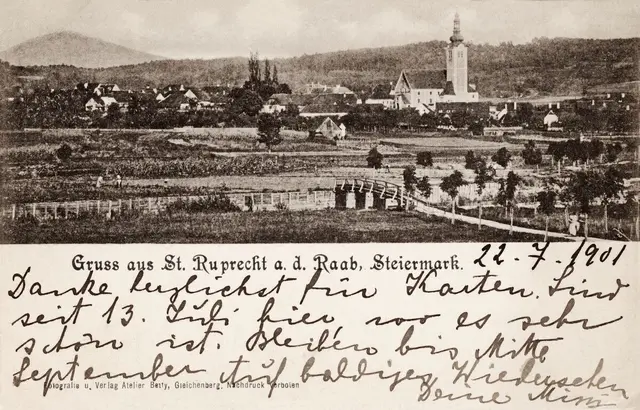 Gruss aus St. Ruprecht a. d. Raab, Steiermark. 22.-7.-1901
Danke herzlichst für Karten. Sind
seit 13. Juli hier wo es sehr
schön ist. Bleiben bis Mitte
September Auf baldiges Wiedersehen
Fotografie u. Verlag Atelier Betty, Gleichenberg, Nachdruck verboten
Deine